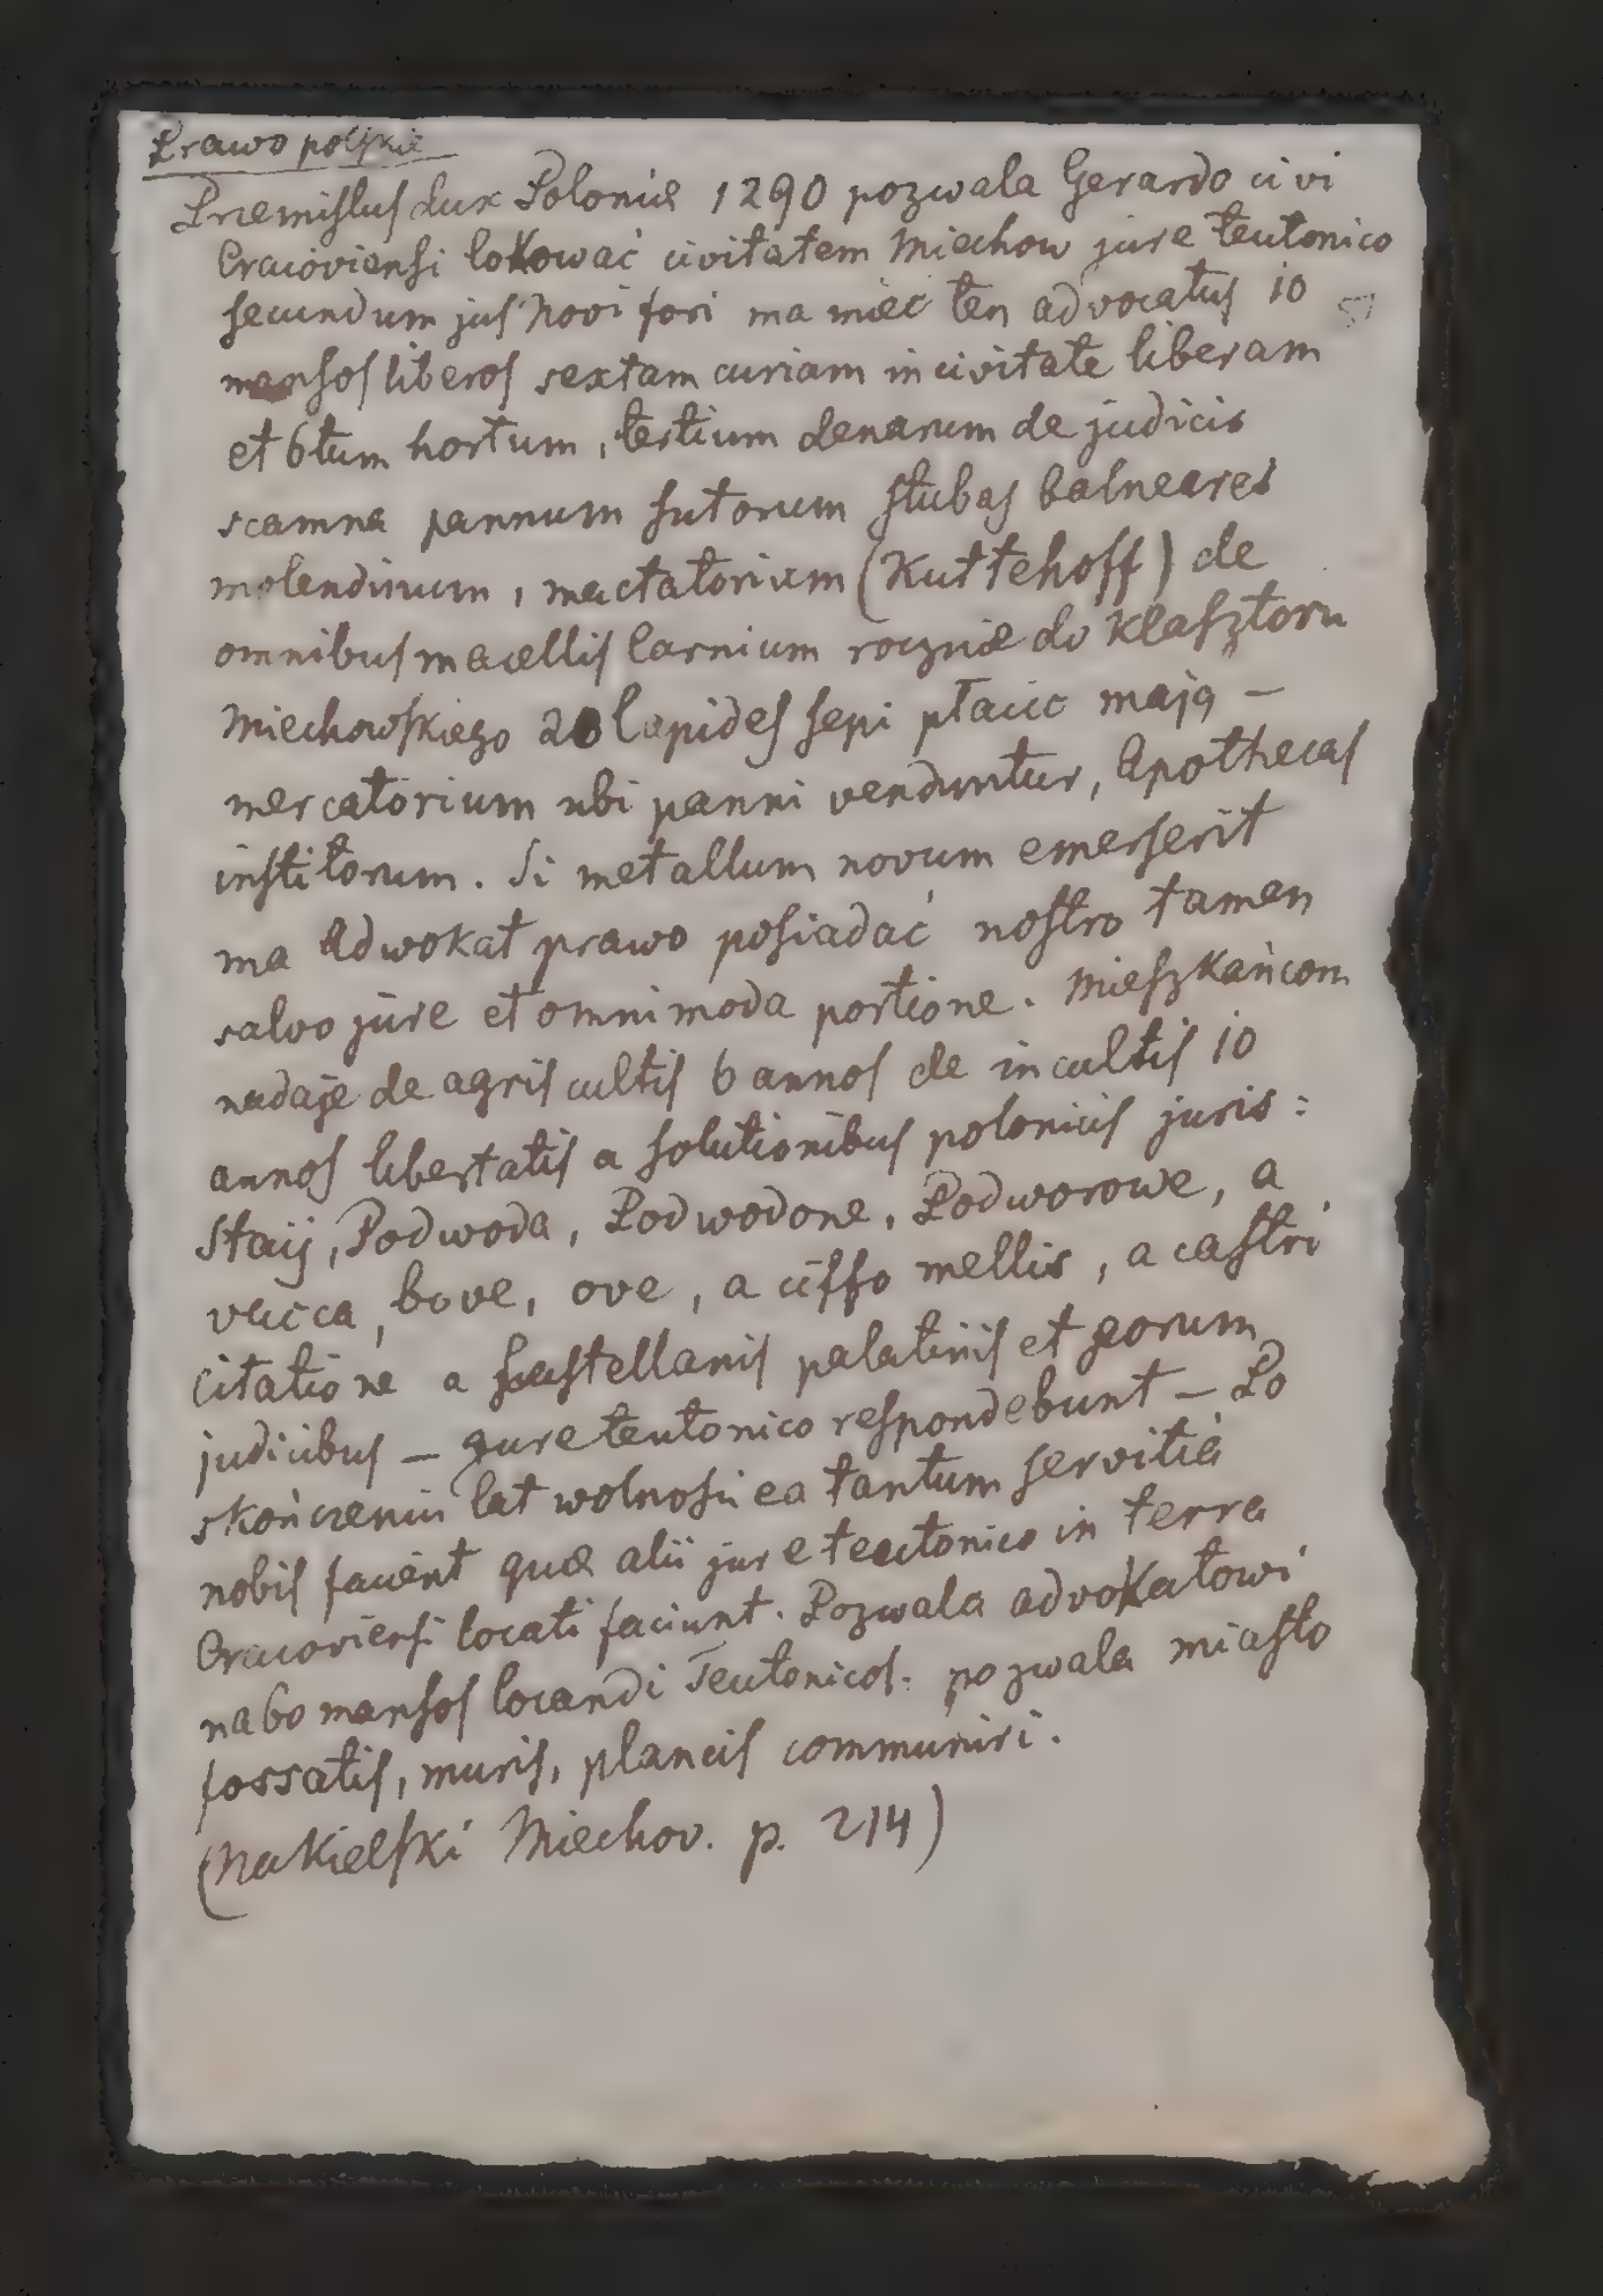 Prawo polskie
Przemislus dux Poloniæ 1290 pozwala Gerardo civi
Cracoviensi lokować civitatem Miechow jure teutonico
secundum jus Novi fori ma mieć ten advocatus 10
mansos liberos sextam curiam in civitate liberam
et 6tum hortum, tertium denarum de judiciis
scamna pannum sutorum stubas balneares
molendinum, mactatorium (Kuttehoff) de
omnibus macellis carnium rocznie do klasztoru
Miechowskiego 20 lapides sepi płacić mają —
mercatorium ubi panni venduntur, Apothecas
institorum. Si metallum novum emerserit
ma Adwokat prawo posiadać nostro tamen
salvo jure et omnimoda portione. Mieszkańcom
nadaje de agris cultis 6 annos de incultis 10
annos libertatis a solutionibus polonicis juris:
Podwoda, Podwodone, Podworowe, a
vacca, bove, ove, a ciffo mellis, a castri
citatione a castellanis palatinis et eorum
judicibus — jure teutonico respondebunt — Po
skończeniu lat wolności ea tantum servitia
nobis facient quæ alii jure teutonico in terra
Cracoviensi locati faciunt. Pozwala advokatowi
na 60 mansos locandi Teutonicos. pozwala miasto
fossatis, muris, plancis communiri.
(Nakielski Miechov. p. 214)